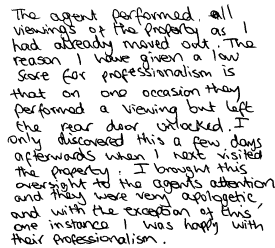 The agent performed all
viewings of the property as I
had already moved out. The
reason I have given a low
score for professionalism is
that on one occasion they
performed a viewing but left
the rear door unlocked. I
only discovered this a few days
afterwards when I next visited
the property. I brought this
oversight to the agents attention
and they were very apologetic,
and with the exception of this,
one instance I was happy with
their professionalism.